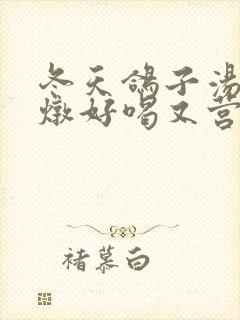 冬天鸽子汤
燉好喝又营
褚慕白